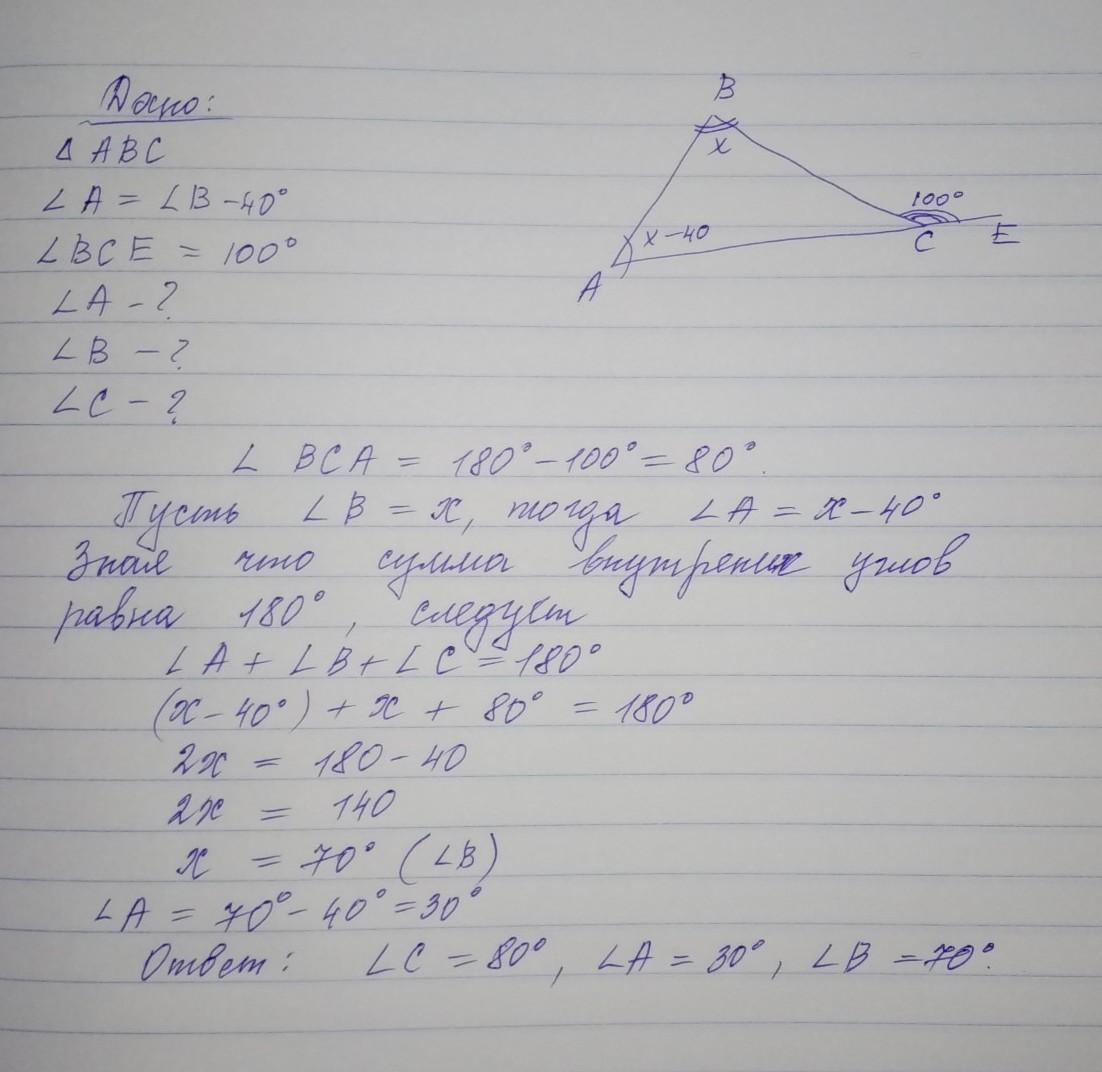 Дано:
Δ ABC
∠A = ∠B -40°
∠BCE = 100°
∠A - ?
∠B - ?
∠C - ?
B
x
100°
x-40
C
E
A
∠ BCA = 180°-100°=80°.
Пусть ∠B = x, тогда ∠A = x-40°
Зная что сумма внутрених углов
равна 180°, следует
∠A + ∠B + ∠C = 180°
(x-40°) + x + 80° = 180°
2x = 180-40
2x = 140
x = 70° (∠B)
∠A = 70°-40°=30°
Ответ: ∠C = 80°, ∠A = 30°, ∠B = 70°.